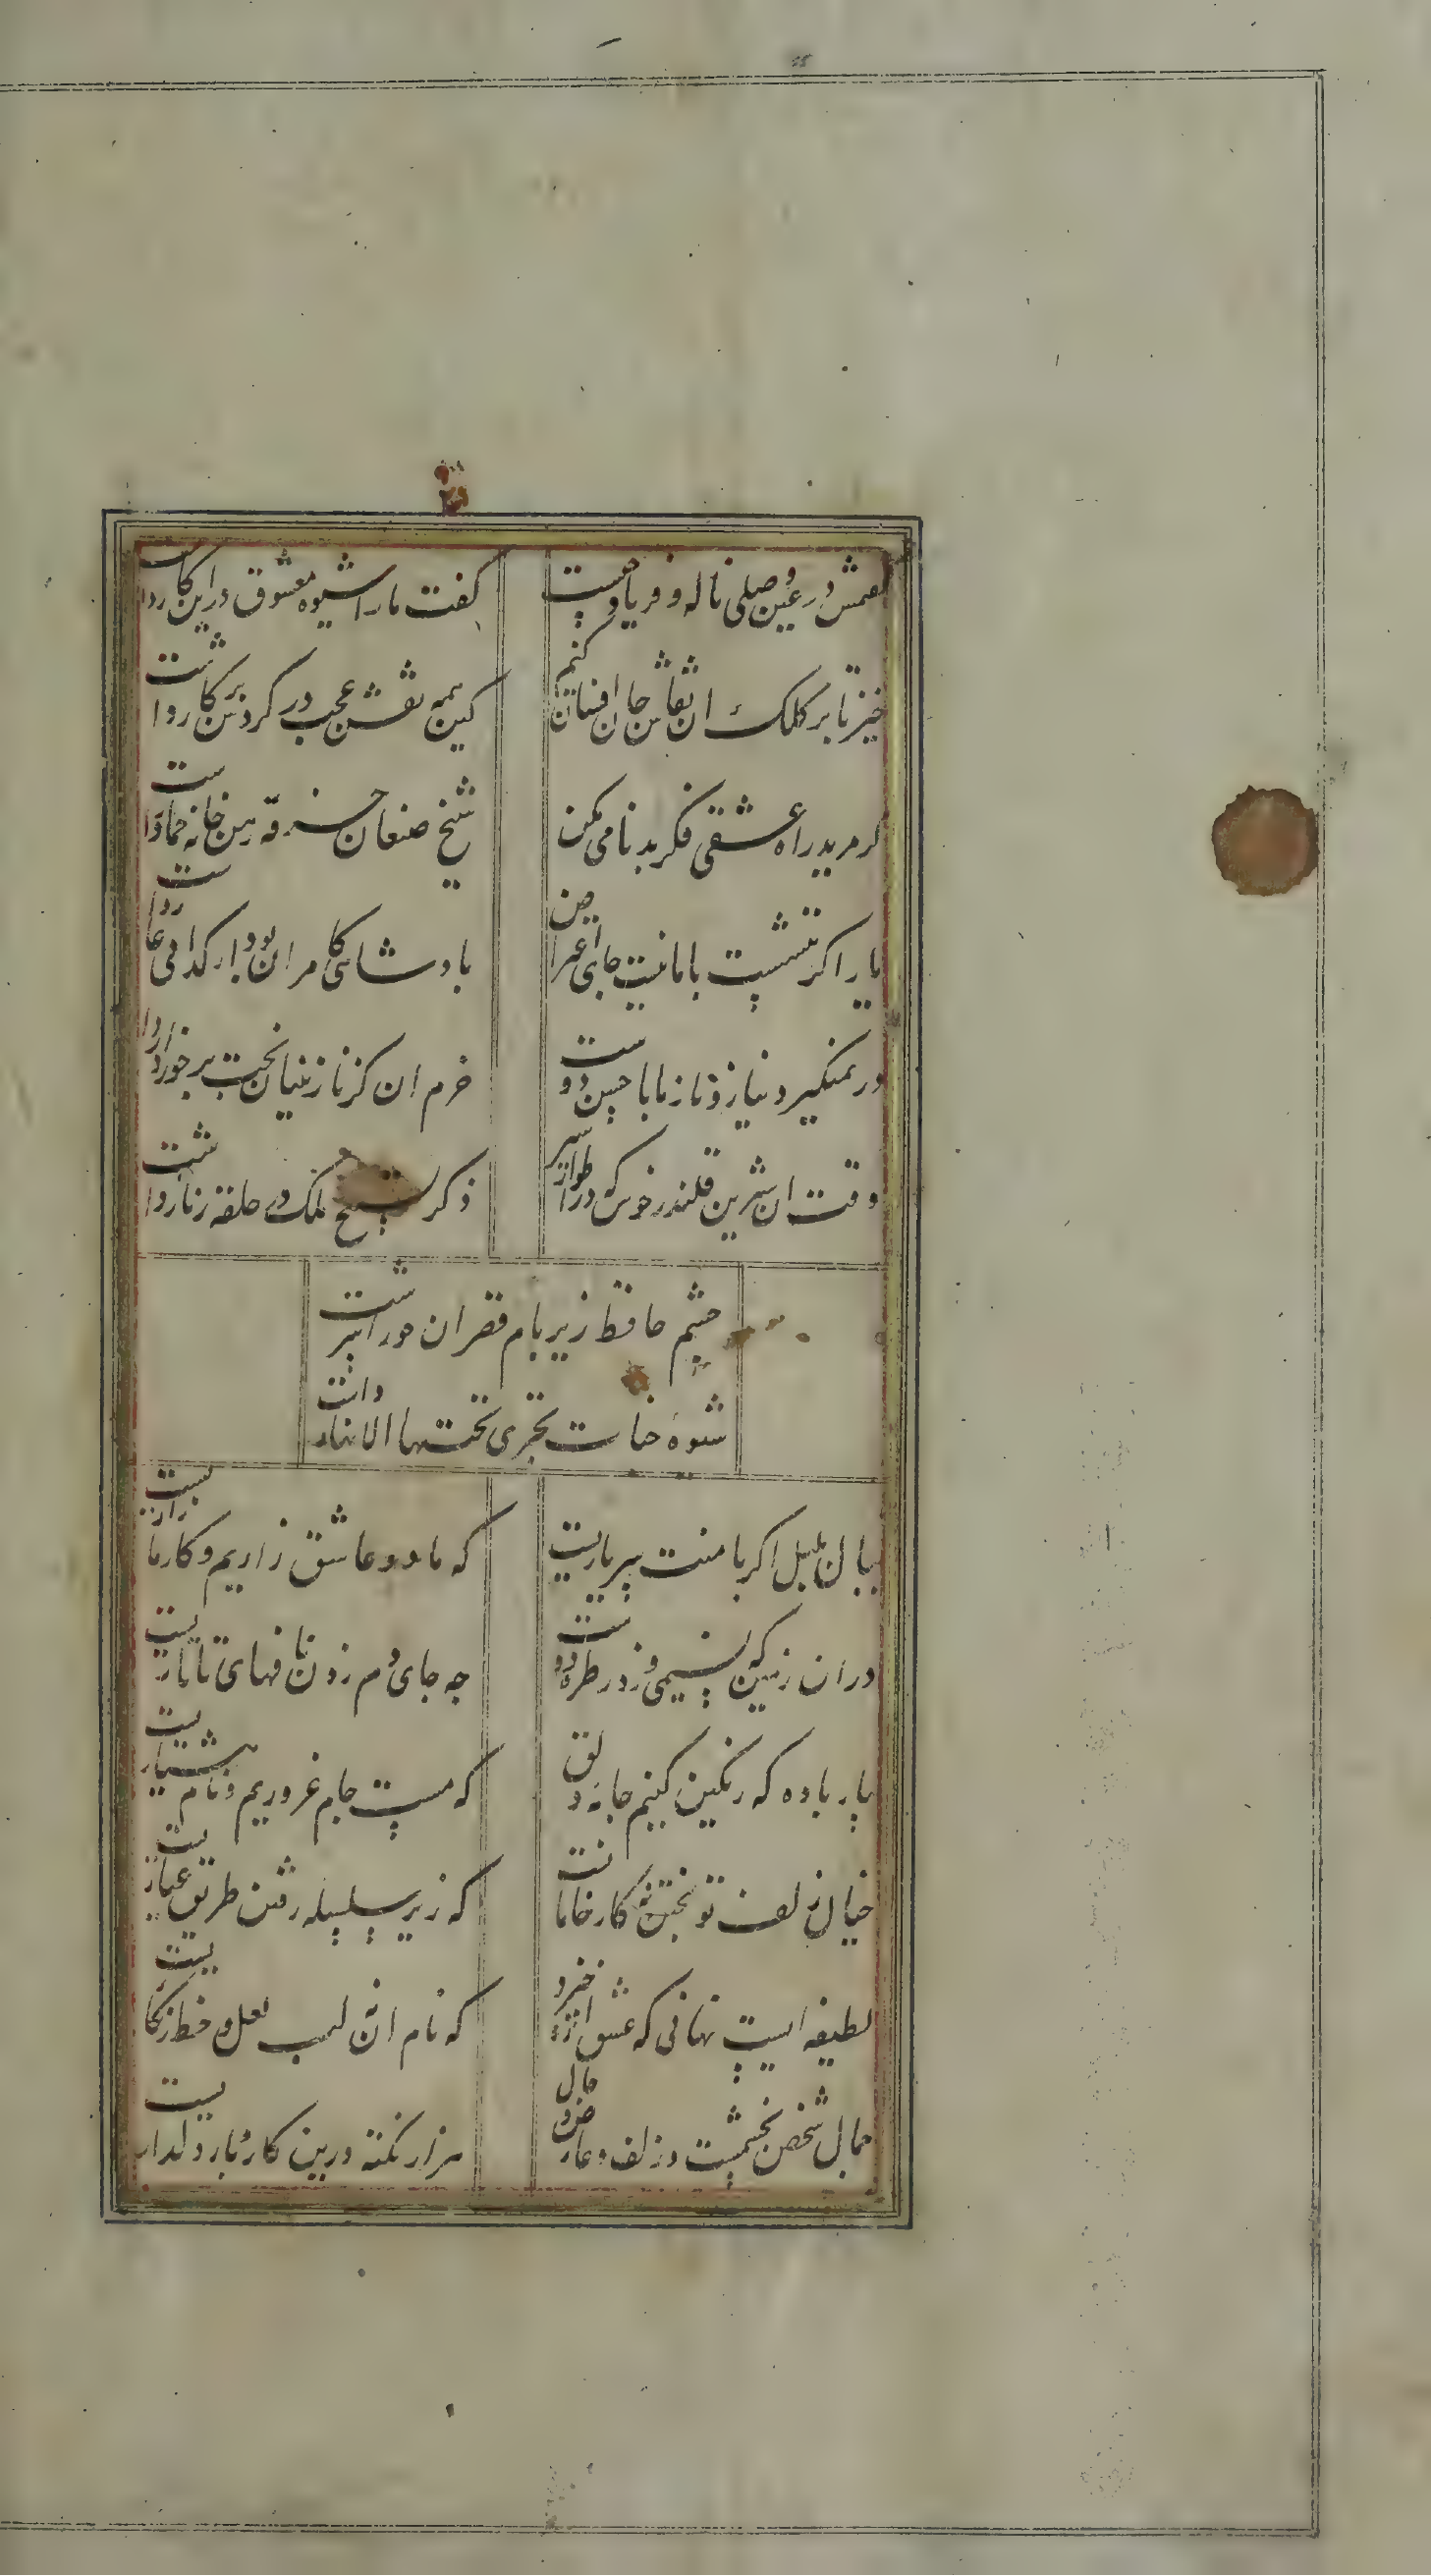 گفتمش در عین وصلی ناله و فریاد چیست
گفت ما را شیوه معشوق در این کار داشت
خیز تا بر کلک ان نقاش جان افشان کنیم
کین همه نقش عجب در گردش پرکار داشت
گر مرید راه عشقی فکر بدنامی مکن
شیخ صنعان خرقه رهن خانه خمار داشت
یار اگر ننشست با ما نیست جای اعتراض
پادشاهی کامران بود از گدائی عار داشت
در نمیگیرد نیاز و ناز ما با حسن دوست
خرم ان کز نازنینان بخت برخوردار داشت
وقت ان شیرین قلندر خوش که در اطوار سیر
ذکر تسبیح ملک در حلقه زنار داشت
چشم حافظ زیر بام قصر ان حور اسرشت
شیوه جنات تجری تحتها الانهار داشت
بنال بلبل اگر با منت سر یاریست
که ما دو عاشق زاریم و کار ما زاریست
در ان زمین که نسیمی وزد ز طره دوست
چه جای دم زدن نافهای تاتاریست
بیار باده که رنگین کنیم جامه دلق
که مست جام غروریم و نام هشیاریست
خیال زلف تو پختن نه کار خامانست
که زیر سلسله رفتن طریق عیاریست
لطیفه ایست نهانی که عشق ازو خیزد
که نام ان نه لب لعل و خط زنکاریست
جمال شخص نه چشمست و زلف و عارض و خال
هزار نکته درین کار و بار دلداریست